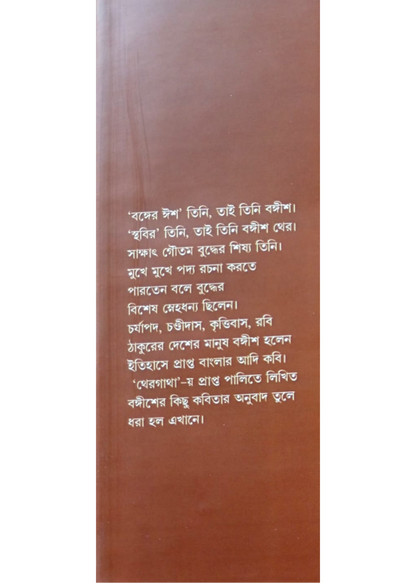 ‘বঙ্গের ঈশ’ তিনি, তাই তিনি বঙ্গীশ।
‘স্থবির’ তিনি, তাই তিনি বঙ্গীশ থের।
সাক্ষাৎ গৌতম বুদ্ধের শিষ্য তিনি।
মুখে মুখে পদ্য রচনা করতে
পারতেন বলে বুদ্ধের
বিশেষ স্নেহধন্য ছিলেন।
চর্যাপদ, চণ্ডীদাস, কৃত্তিবাস, রবি
ঠাকুরের দেশের মানুষ বঙ্গীশ হলেন
ইতিহাসে প্রাপ্ত বাংলার আদি কবি।
‘থেরগাথা’–য় প্রাপ্ত পালিতে লিখিত
বঙ্গীশের কিছু কবিতার অনুবাদ তুলে
ধরা হল এখানে।